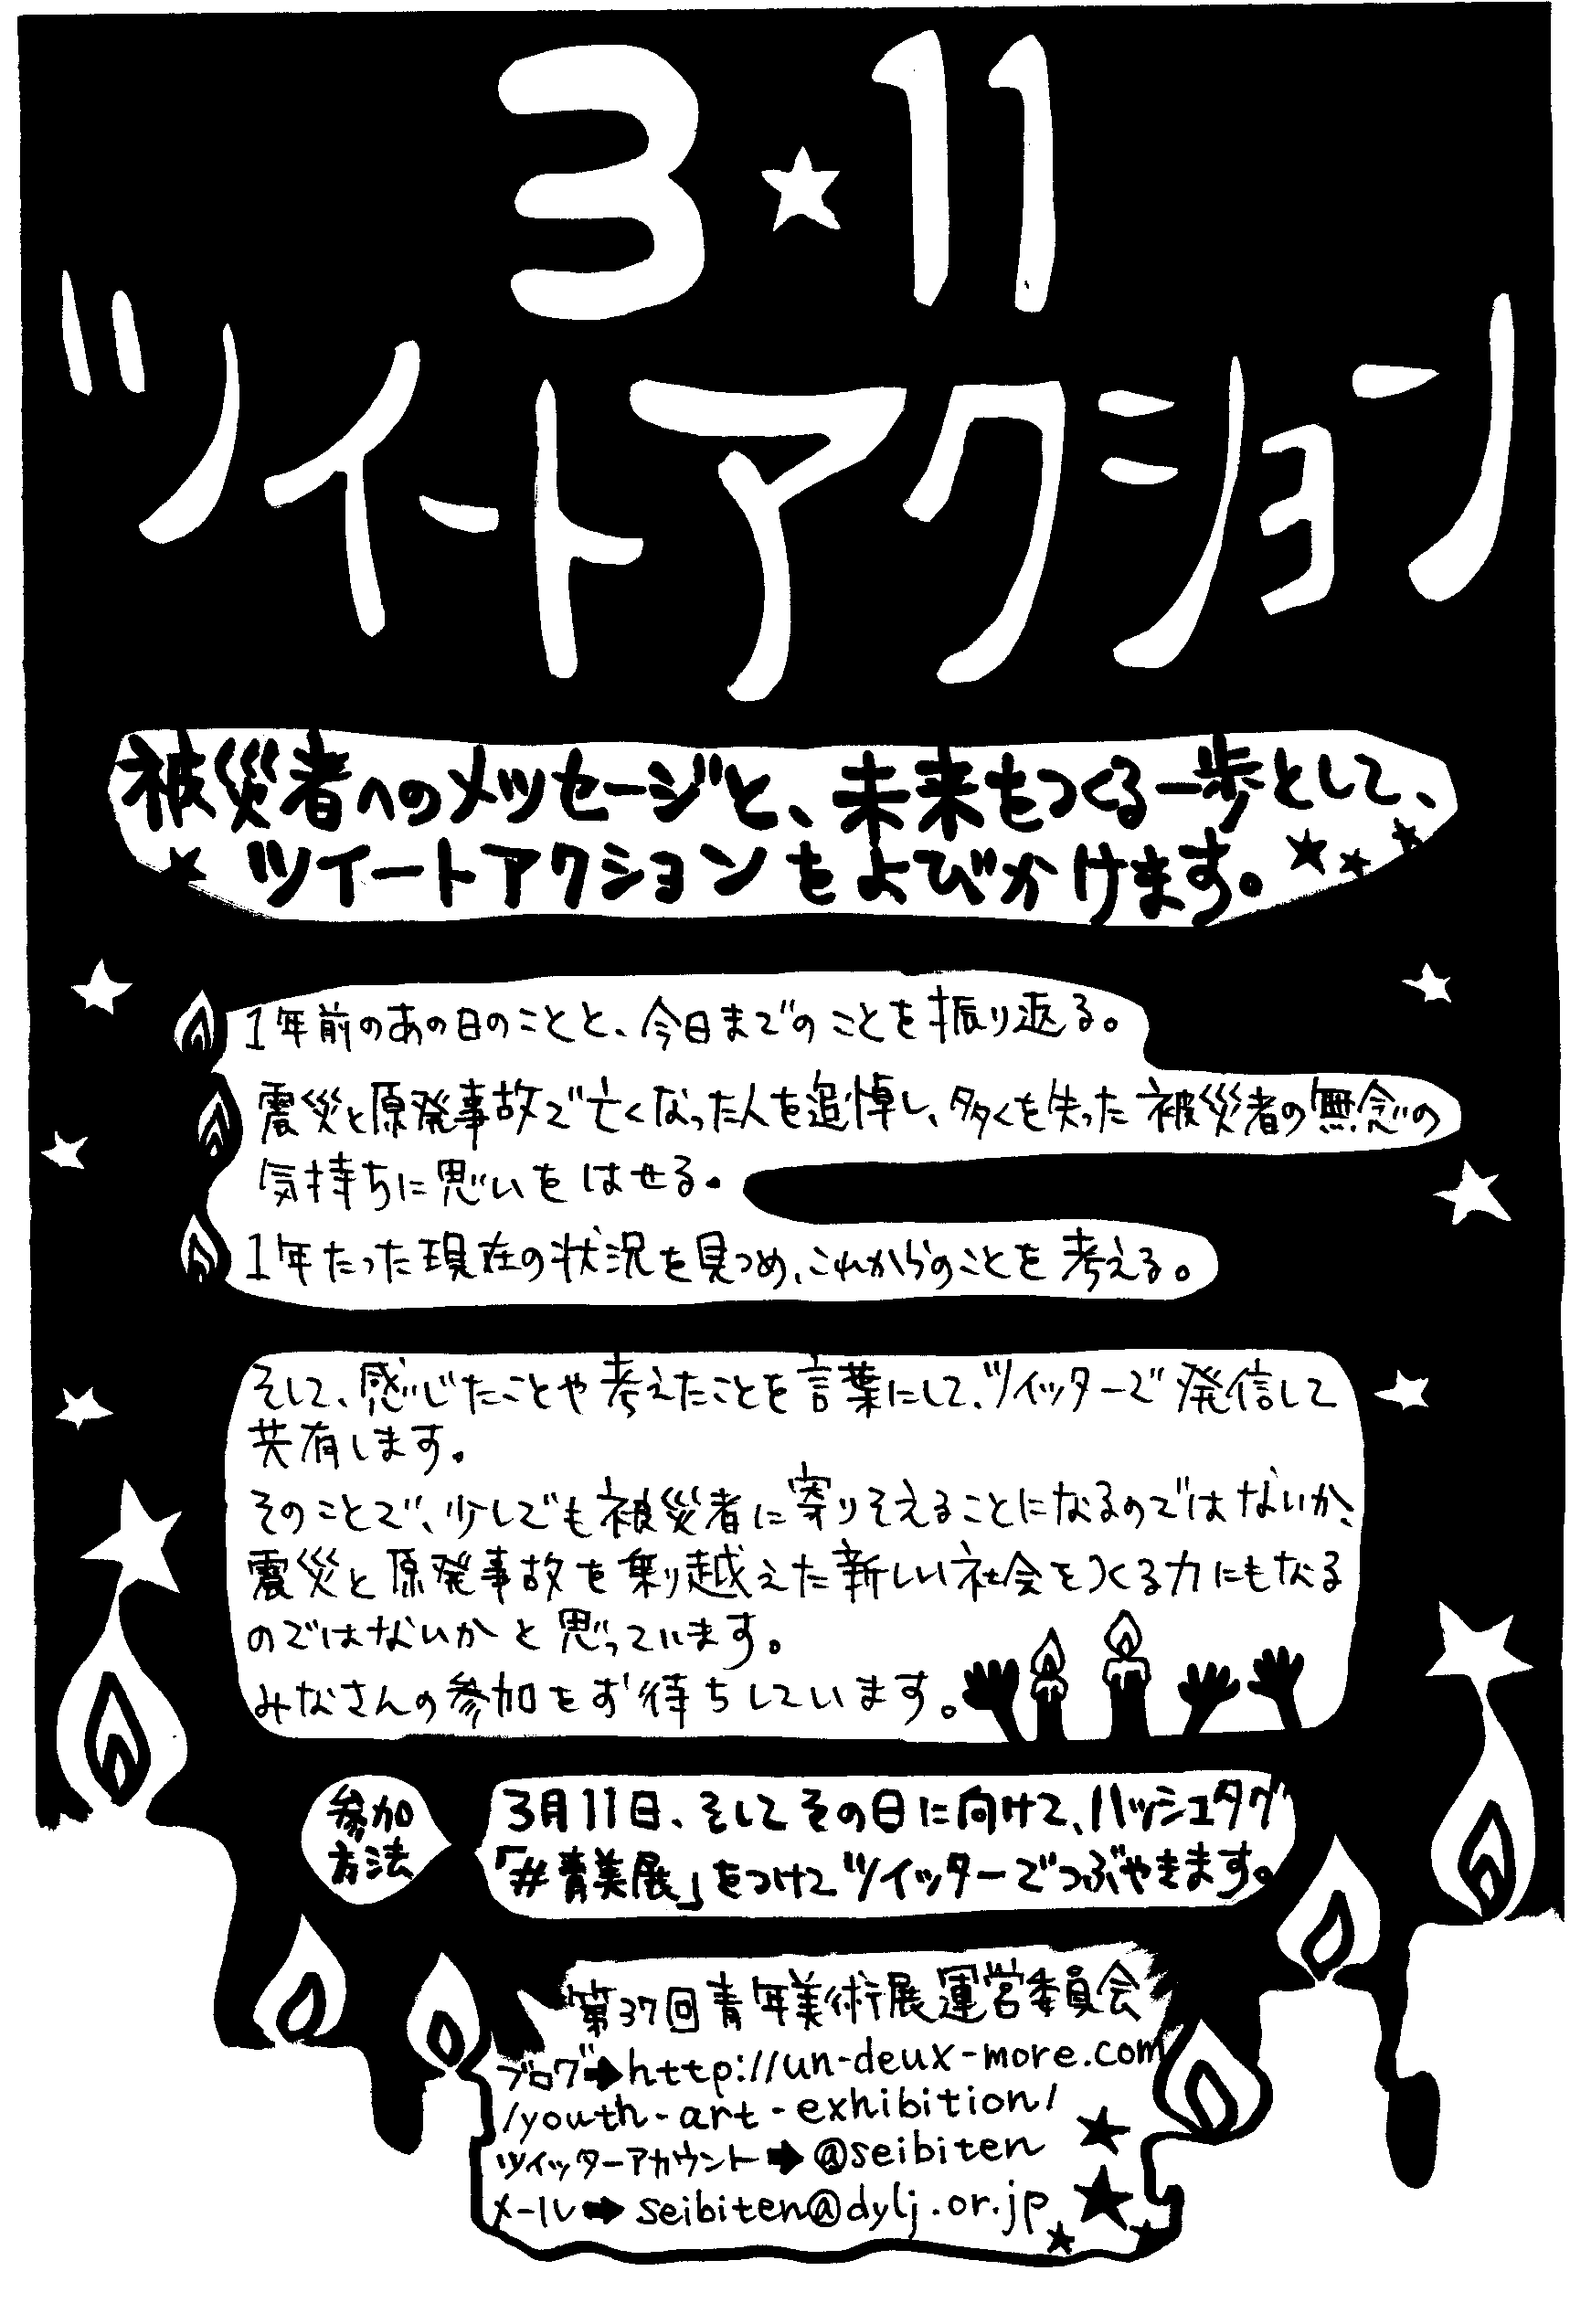 3★11
ツイートアクション
被災者へのメッセージと、未来をつくる一歩として、
ツイートアクションをよびかけます。
1年前のあの日のことと、今日までのことを振り返る。
震災と原発事故で亡くなった人を追悼し、多くを失った被災者の無念の
気持ちに思いをはせる。
1年たった現在の状況を見つめ、これからのことを考える。
そして、感じたことや考えたことを言葉にして、ツイッターで発信して
共有します。
そのことで、少しでも被災者に寄りそえることになるのではないか、
震災と原発事故を乗り越えた新しい社会をつくる力にもなる
のではないかと思っています。
みなさんの参加をお待ちしています。
参加
方法
3月11日、そしてその日に向けて、ハッシュタグ
「#青美展」をつけてツイッターでつぶやきます。
第37回青年美術展運営委員会
ブログ➡http://un-deux-more.com
/youth-art-exhibition/
ツイッターアカウント➡@seibiten
メール➡seibiten@dylj.or.jp